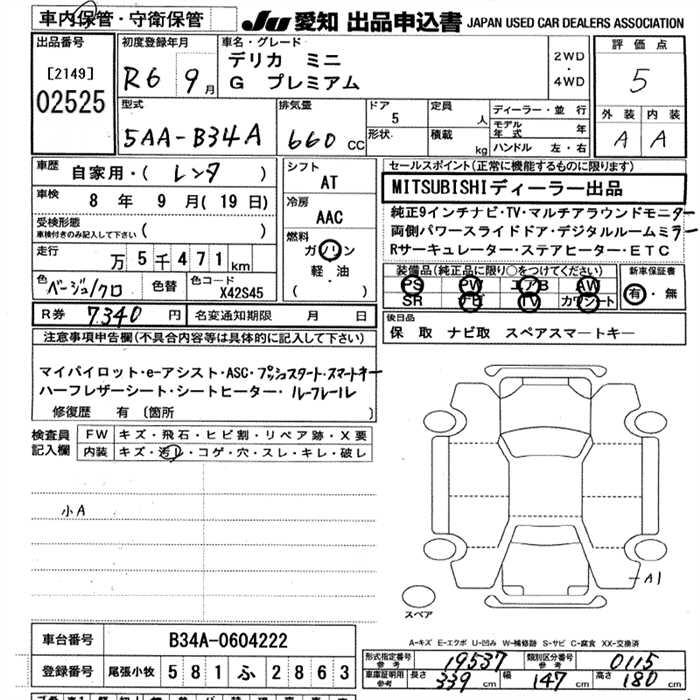 車内保管・守衛保管
JU 愛知 出品申込書 JAPAN USED CAR DEALERS ASSOCIATION
出品番号
[2149]
02525
初度登録年月
R6 9月
車名・グレード
デリカ ミニ
G プレミアム
2WD
・
4WD
評価点
5
外装 内装
A A
型式
5AA-B34A
排気量
660 CC
ドア
5
形状
定員
人
積載
kg
ディーラー・並行
モデル年式 年
ハンドル 左・右
車歴
自家用・( レンタ )
車検
8 年 9 月 (19 日)
受検形態
車検付きのみ記入して下さい ( )
走行
万 5 千 471 km
色
ベージュ/クロ
色替
色コード
X42S45
シフト
AT
冷房
AAC
燃料
ガソリン
軽・油
( )
R券 7,340 円
名変通知期限 月 日
セールスポイント(正常に機能するものに限ります)
MITSUBISHIディーラー出品
純正9インチナビ・TV・マルチアラウンドモニター
両側パワースライドドア・デジタルルームミラー
Rサーキュレーター・ステアヒーター・ETC
装備品(純正品に限り○をつけてください)
PS PW エアB AW
SR ナビ TV カワシート
新車保証書
有・無
後日品
保 取 ナビ取 スペアスマートキー
注意事項申告欄(不具合内容等は具体的に記入して下さい)
マイパイロット・e-アシスト・ASC・プッシュスタート・スマートキー
ハーフレザーシート・シートヒーター・ルーフレール
修復歴 有 〔箇所 〕
検査員記入欄
FW キズ・飛石・ヒビ割・リペア跡・X要
内装 キズ・汚レ・コゲ・穴・スレ・キレ・破レ
小A
A1
スペア
A-キズ E-エクボ U-凹み W-補修跡 S-サビ C-腐食 XX-交換済
車台番号 B34A-0604222
登録番号 尾張小牧 581 ふ 2863
形式指定番号 参考 19537
類別区分番号 参考 0115
車庫証明用 参考 長さ 339 cm 幅 147 cm 高さ 180 cm